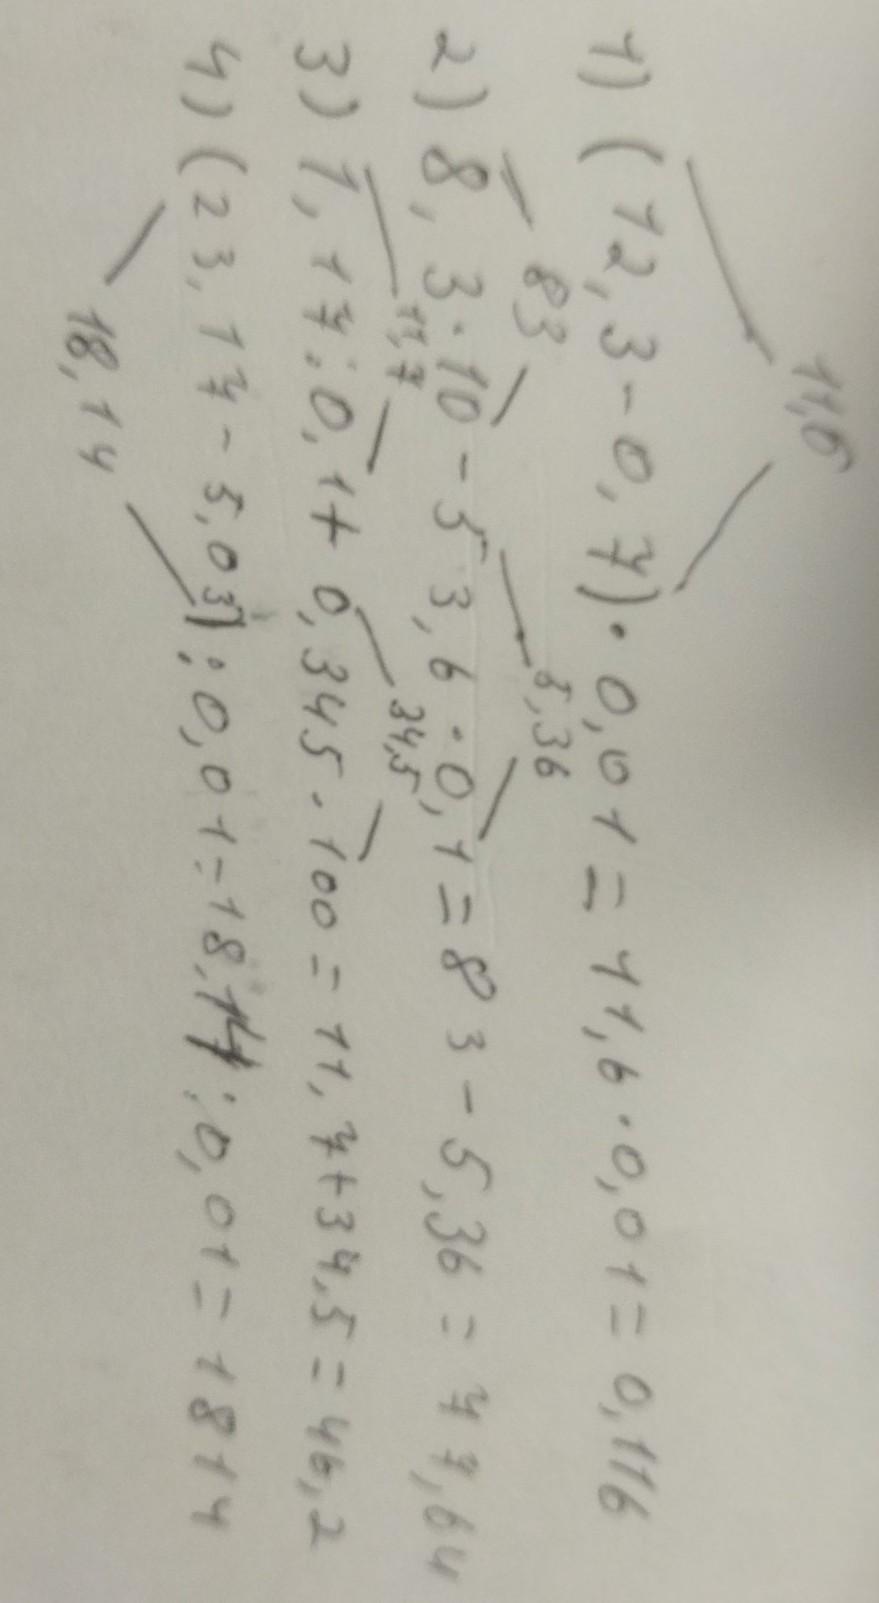 11,6
1) (12,3-0,7)·0,01=11,6·0,01=0,116
83 5,36
2) 8,3·10-53,6·0,1=83-5,36=77,64
11,7 34,5
3) 1,17:0,1+0,345·100=11,7+34,5=46,2
4) (23,17-5,03):0,01=18,14:0,01=1814
18,14